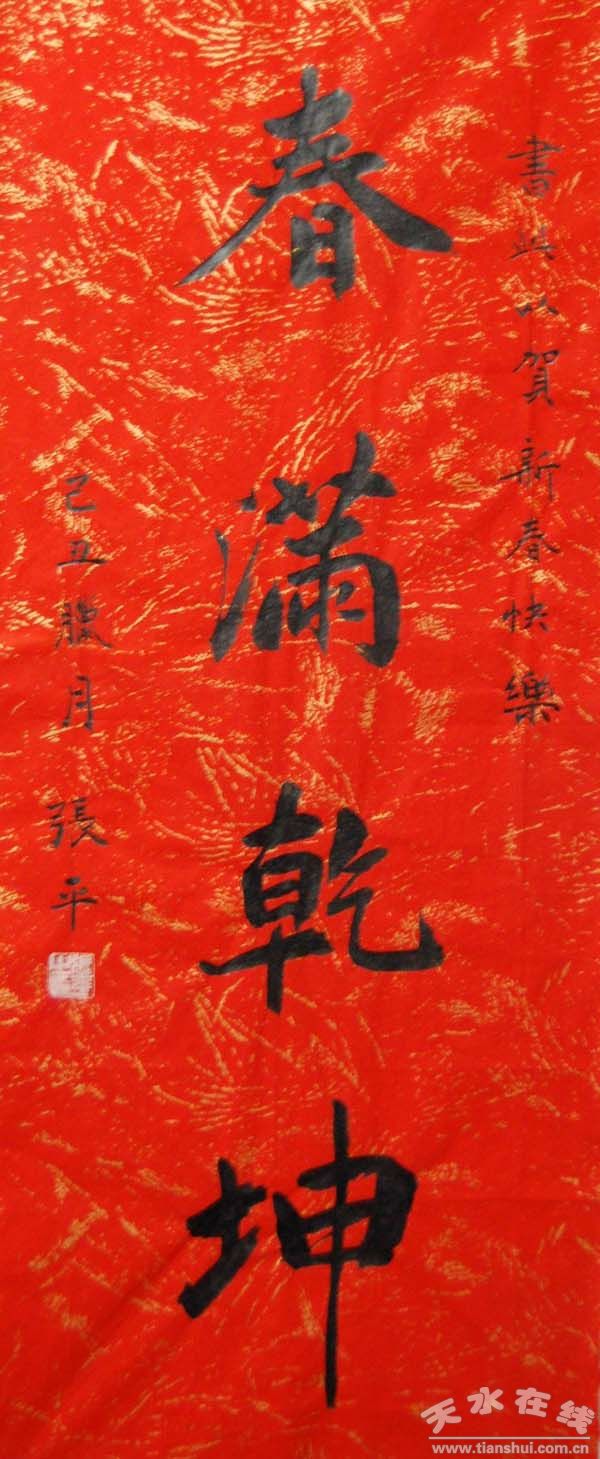 書此以賀新春快樂
春滿乾坤
己丑臘月 張平
天水在线
www.tianshui.com.cn